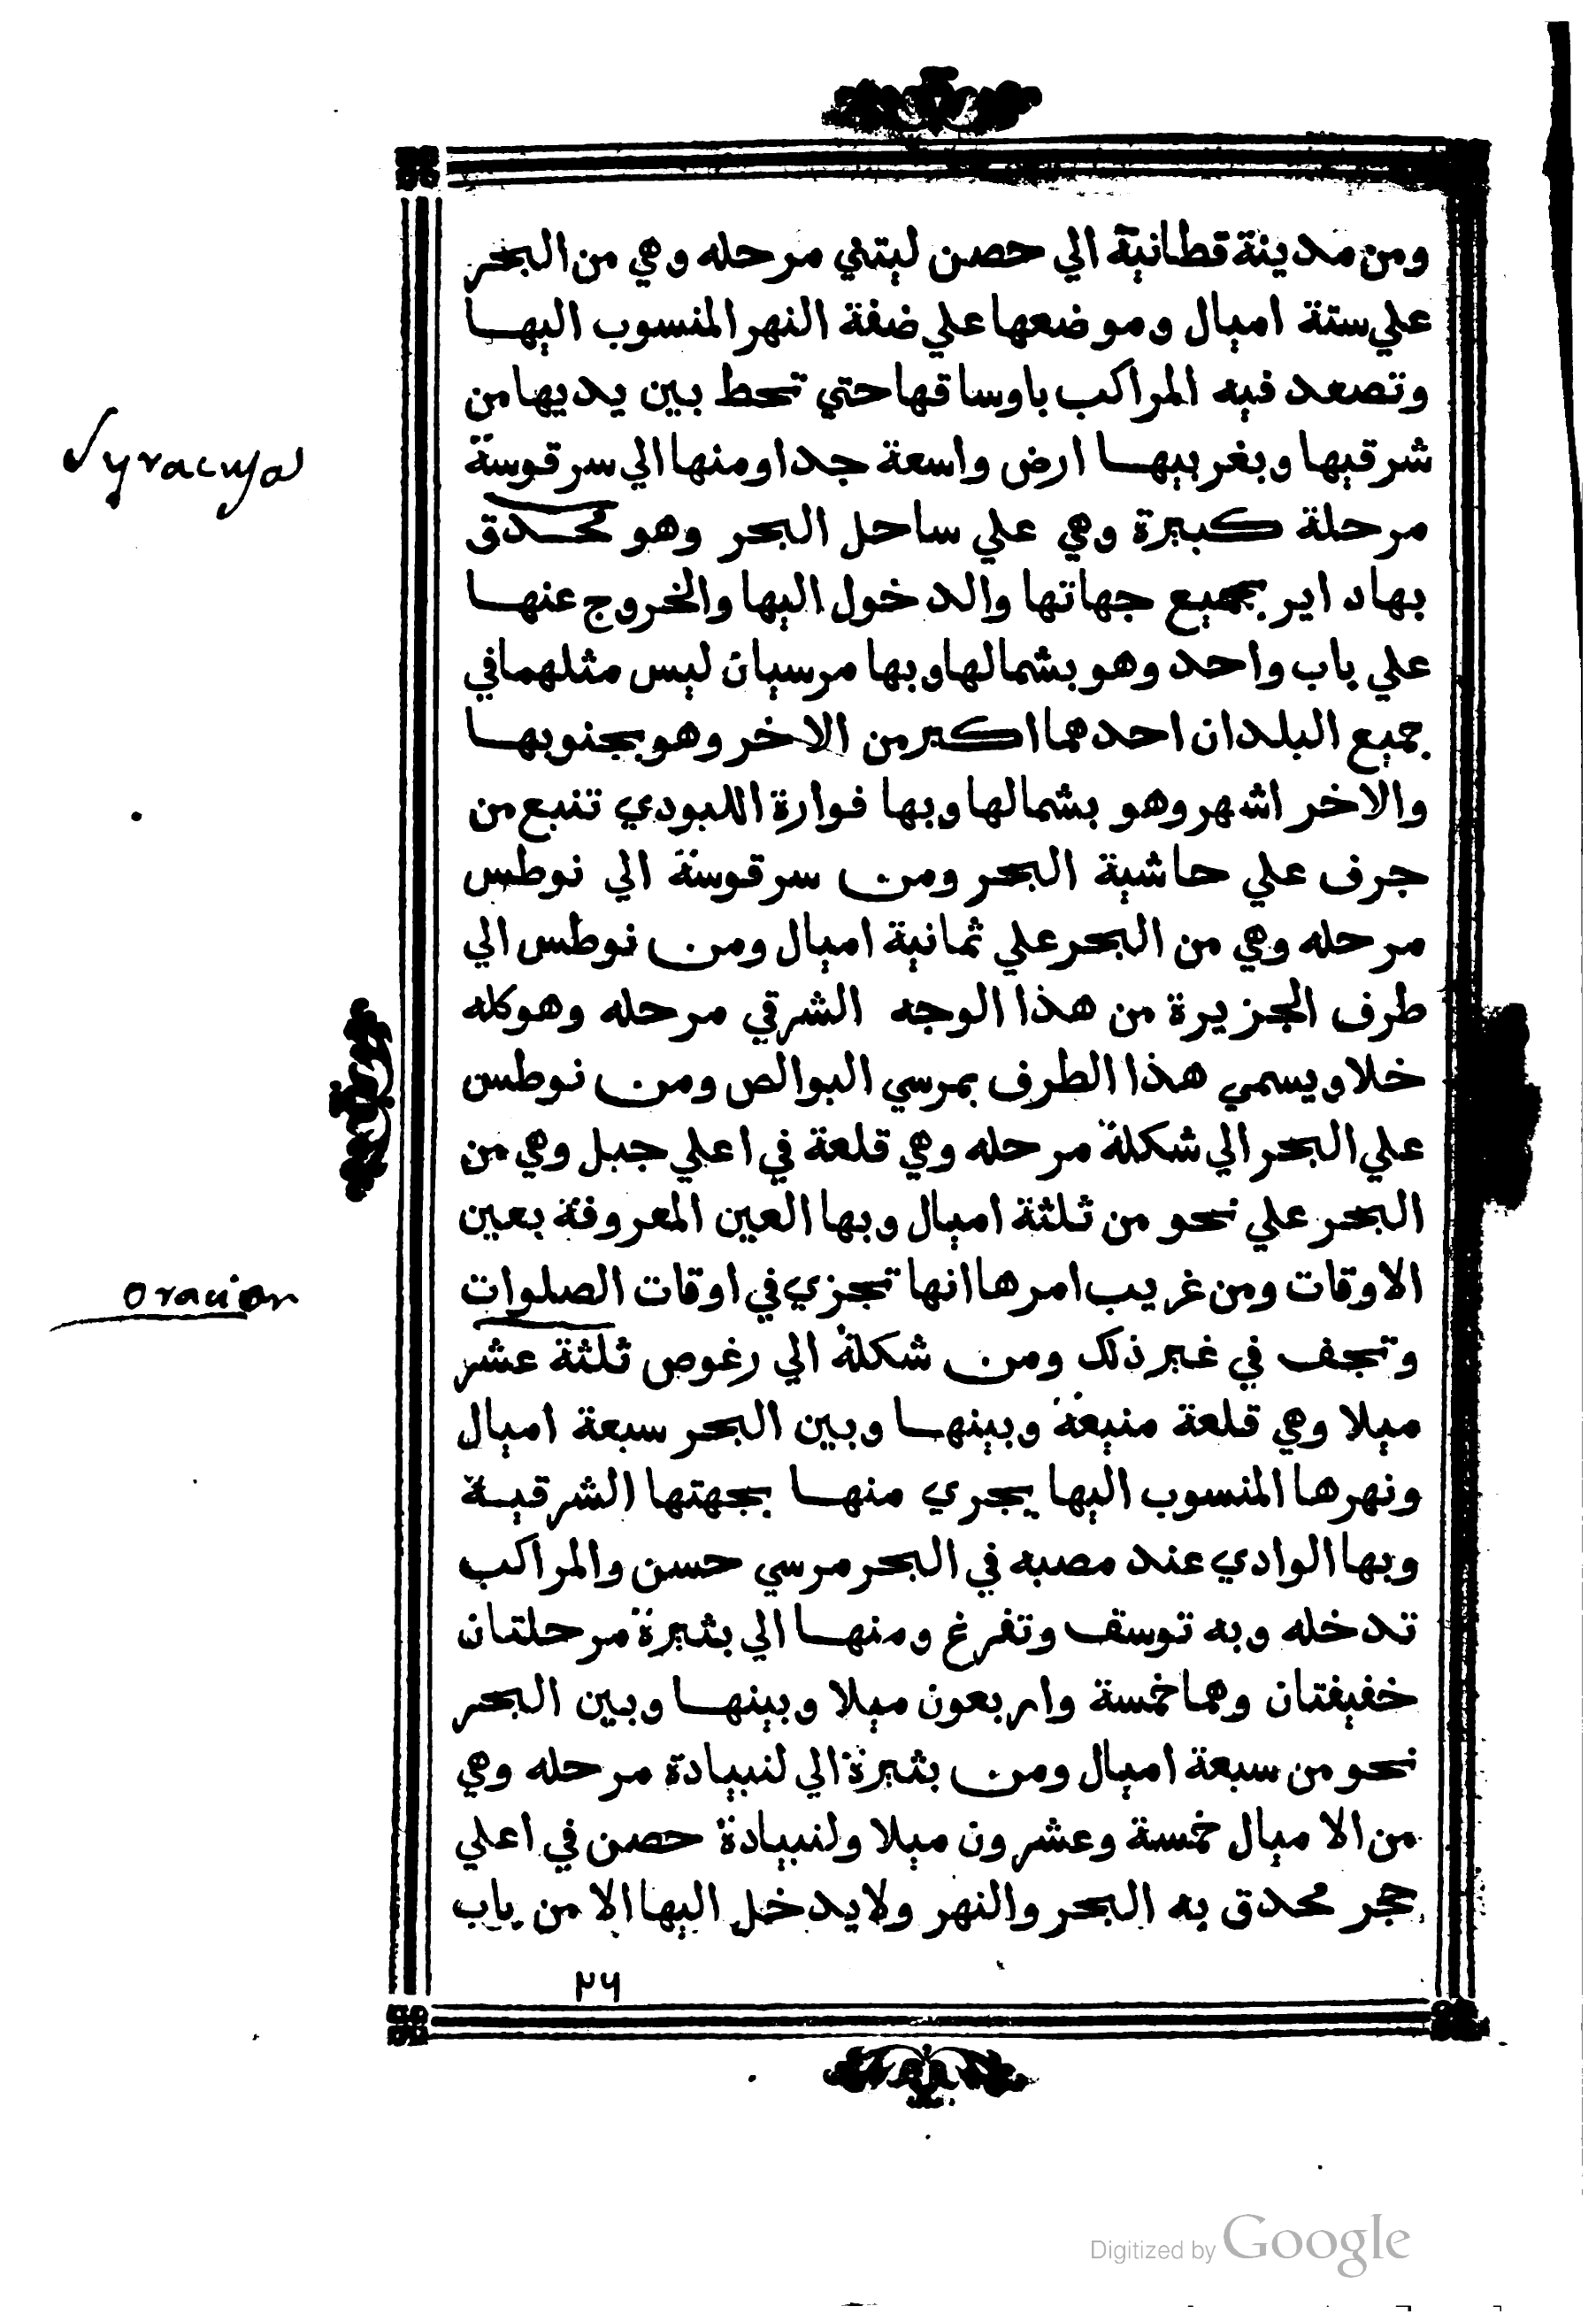 ومن مدينة قطانية الي حصن لبتني مرحله وهي من البحر
علي ستة اميال وموضعها علي ضفة النهر المنسوب اليها
وتصعد فيه المراكب باوساقها حتي تحط بين يديها من
شرقيها وبغربيها ارض واسعة جدا ومنها الي سرقوسة
Syracusa
مرحلة كبيرة وهي علي ساحل البحر وهو محدق
بها داير بجميع جهاتها والدخول اليها والخروج عنها
علي باب واحد وهو بشمالها وبها مرسيان ليس مثلهما في
جميع البلدان احدهما اكبر من الاخر وهو بجنوبها
والاخر اشهر وهو بشمالها وبها فوارة اللبودي تنبع من
جرف علي حاشية البحر ومن سرقوسة الي نوطس
مرحله وهي من البحر علي ثمانية اميال ومن نوطس الي
طرف الجزيرة من هذا الوجه الشرقي مرحله وهو كله
خلا ويسمي هذا الطرف بمرسي البوالص ومن نوطس
علي البحر الي شكلة مرحله وهي قلعة في اعلي جبل وهي من
البحر علي نحو من ثلثة اميال وبها العين المعروفة بعين
الاوقات ومن غريب امرها انها تجزي في اوقات الصلوات
oracion
وتجف في غير ذلك ومن شكلة الي رغوص ثلثة عشر
ميلا وهي قلعة منيعة وبينها وبين البحر سبعة اميال
ونهرها المنسوب اليها يجري منها بجهتها الشرقية
وبها الوادي عند مصبه في البحر مرسي حسن والمراكب
تدخله وبه توسق وتفرغ ومنها الي بثيرة مرحلتان
خفيفتان وهما خمسة واربعون ميلا وبينها وبين البحر
نحو من سبعة اميال ومن بثيرة الي لنبيادة مرحله وهي
من الاميال خمسة وعشرون ميلا ولنبيادة حصن في اعلي
حجر محدق به البحر والنهر ولا يدخل اليها الا من باب
٢٦
Digitized by Google